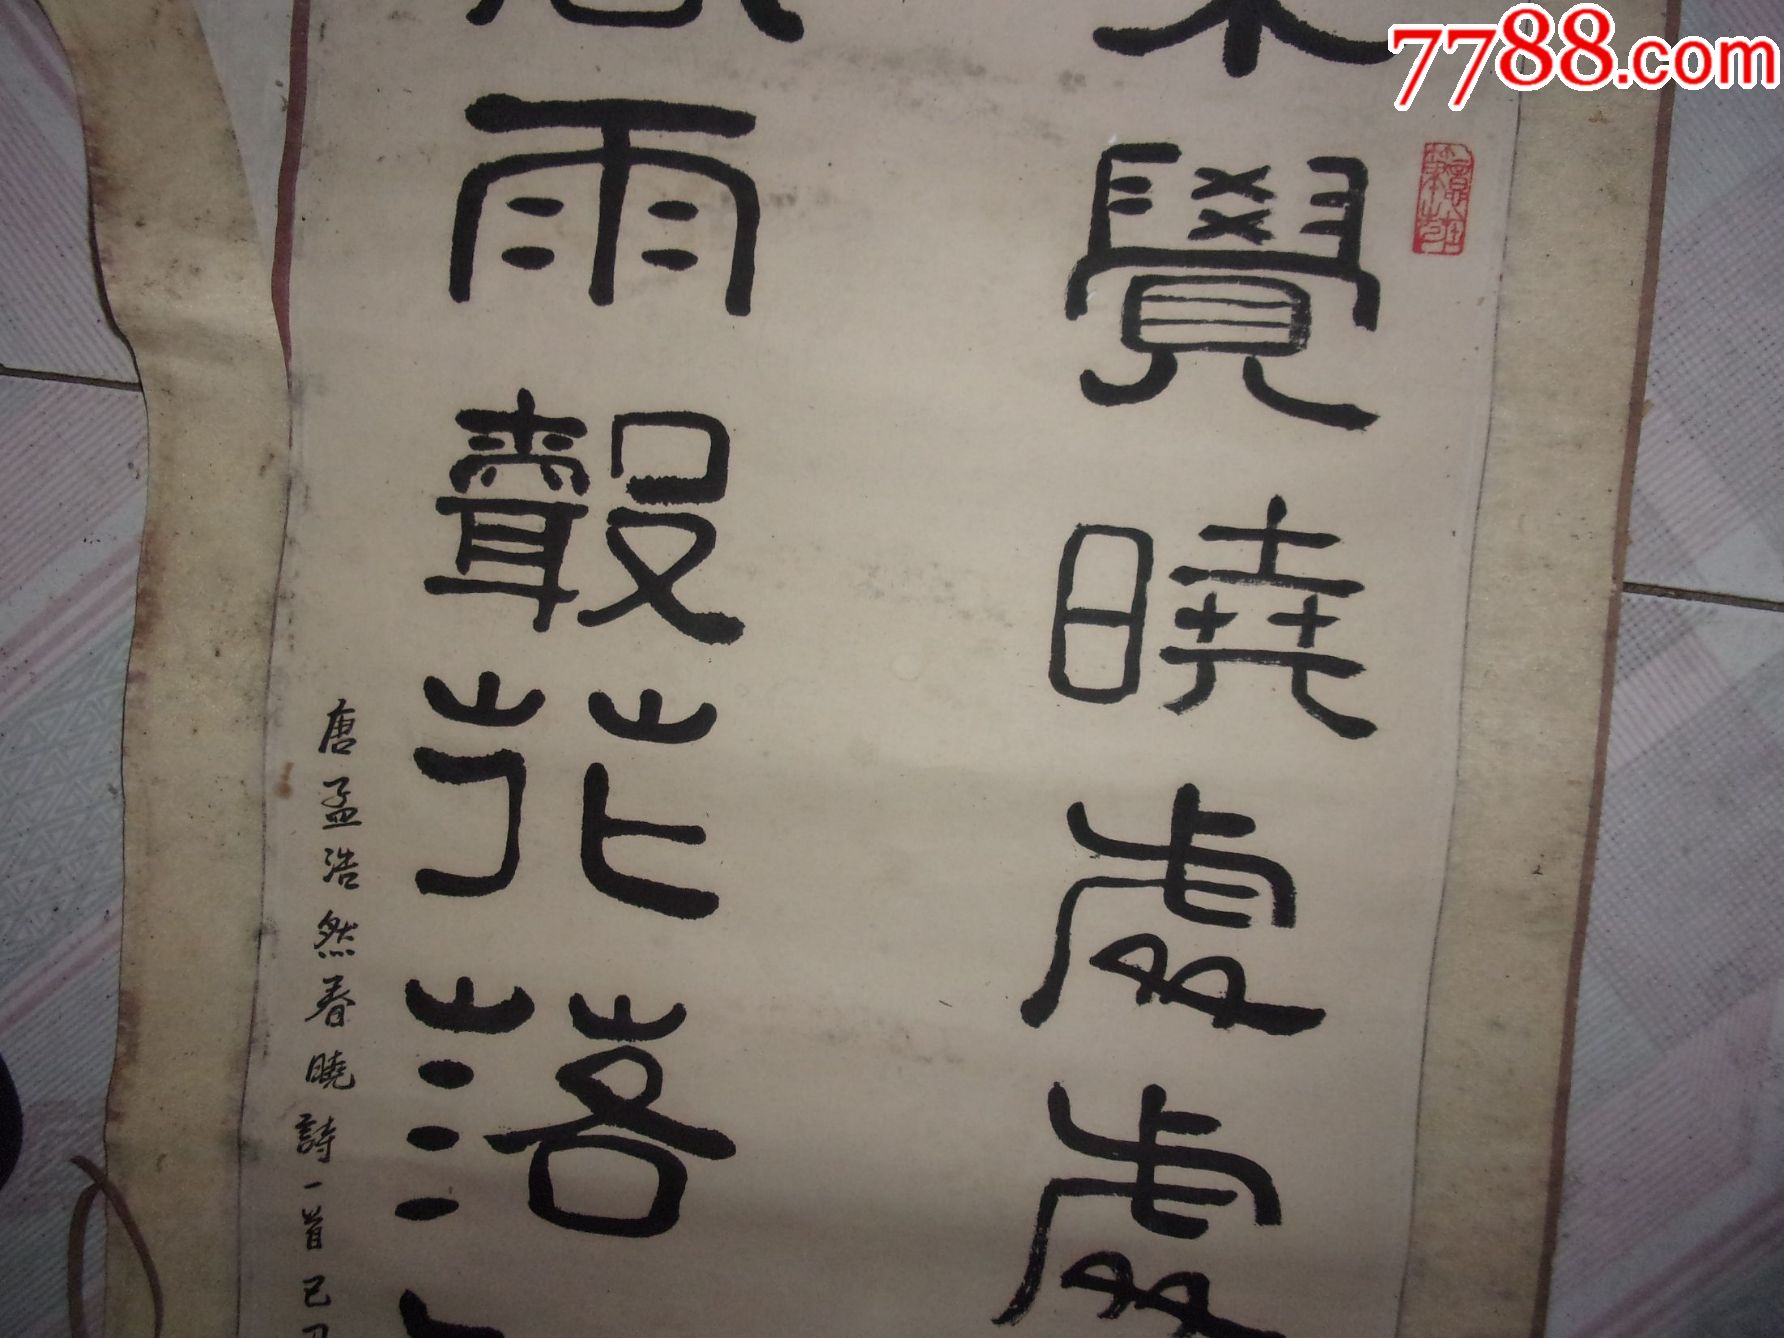 7788.com
覺曉處處
雨聲花落
唐孟浩然春曉詩一首己